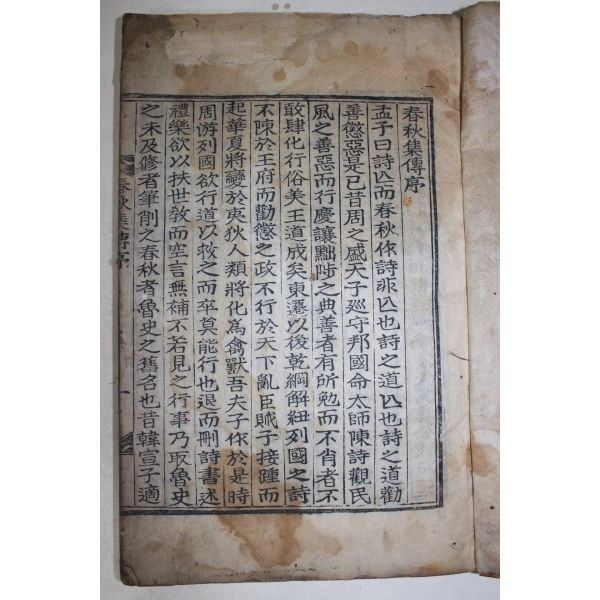 春秋集傳序
孟子曰詩亾而春秋作詩非亾也詩之道亾也詩之道勸
善懲惡是已昔周之盛天子廵守邦國命太師陳詩觀民
風之善惡而行慶讓黜陟之典善者有所勉而不肖者不
敢肆化行俗美王道成矣東遷以後乾綱解紐列國之詩
不陳於王府而勸懲之政不行於天下亂臣賊子接踵而
起華夏將變於夷狄人類將化為禽獸吾夫子作於是時
周游列國欲行道以救之而卒莫能行也退而刪詩書述
禮樂欲以扶世敎而空言無補不若見之行事乃取魯史
之未及修者筆削之春秋者魯史之舊名也昔韓宣子適
春秋集傳序
一